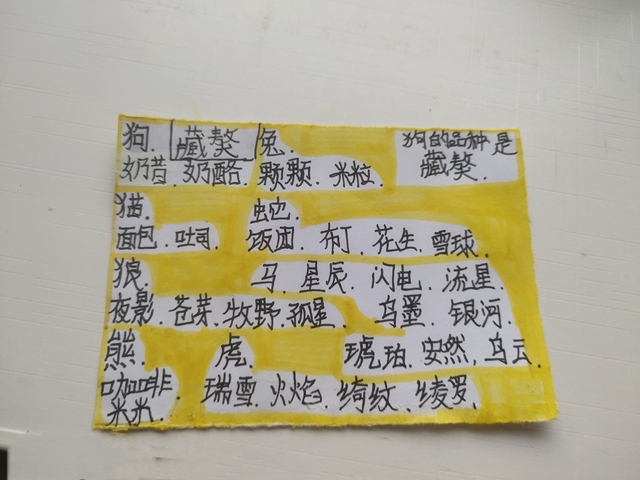 狗. 藏獒 兔. 狗的品种是
奶昔. 奶酪. 颗颗. 米粒. 藏獒.
猫. 蛇.
面包. 吐司. 饭团. 布丁. 花生. 雪球.
狼. 马. 星辰. 闪电. 流星.
夜影. 苍芽. 牧野. 孤星. 乌墨. 银河.
熊. 虎. 琥珀. 安然. 乌云.
咖啡. 瑞雪. 火焰. 绮纹. 绫罗.
米米